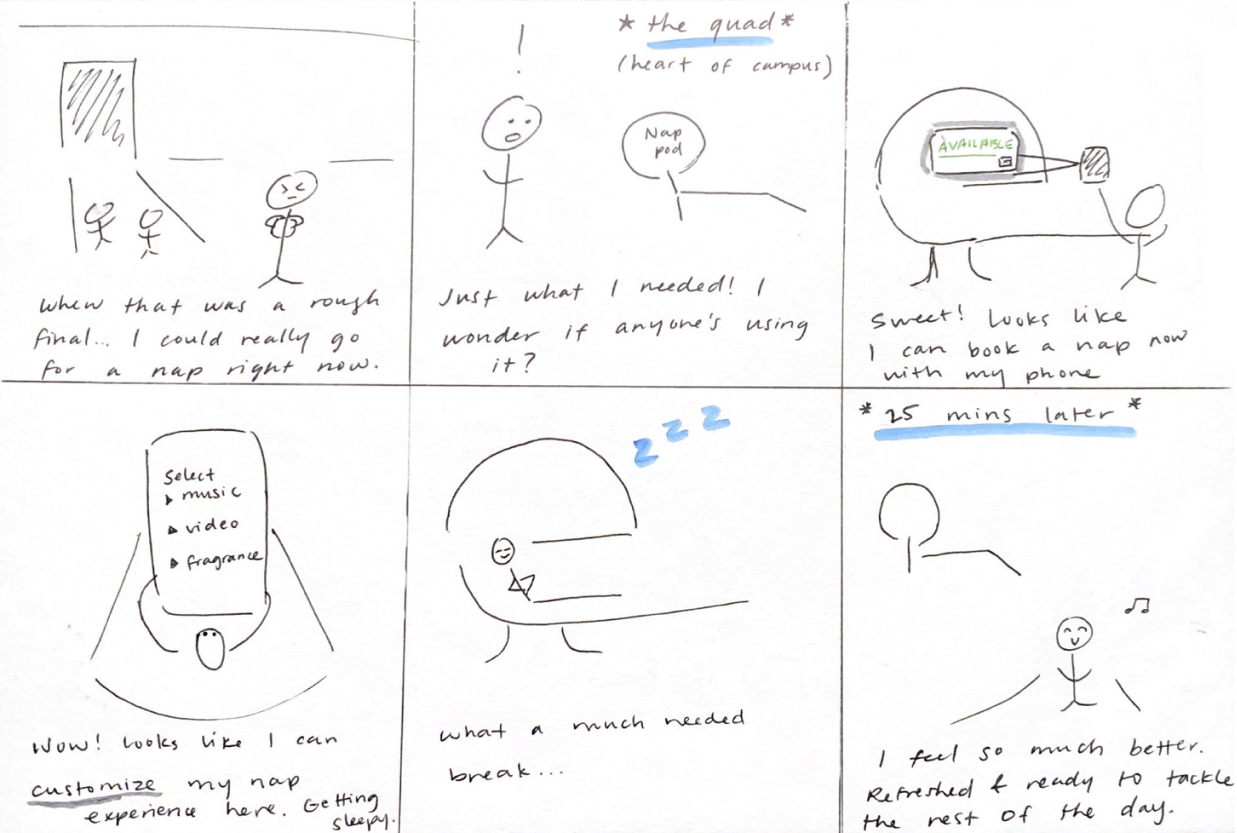 whew that was a rough
final... I could really go
for a nap right now.
!
* the quad *
(heart of campus)
Nap
pod
Just what I needed! I
wonder if anyone's using
it?
AVAILABLE
Sweet! Looks like
I can book a nap now
with my phone
Select
▸ music
▸ video
▸ fragrance
Wow! Looks like I can
customize my nap
experience here. Getting
sleepy.
z z z
what a much needed
break...
* 25 mins later *
I feel so much better.
Refreshed & ready to tackle
the rest of the day.